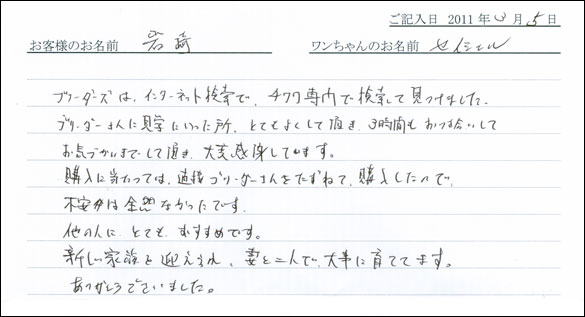 ご記入日 2011年3月5日
お客様のお名前 岩崎 ワンちゃんのお名前 セイシェル
ブリーダーズは、インターネット検索で、チワワ専門で検索して見つけました。
ブリーダーさんに見学にいった所、とてもよくして頂き、3時間もおつき合いして
お気づかいまでして頂き、大変感謝しています。
購入に当たっては、直接ブリーダーさんをたずねて、購入したので、
不安は全然なかったです。
他の人に、とても、おすすめです。
新しい家族を迎えられ、妻と二人で、大事に育ててます。
ありがとうございました。